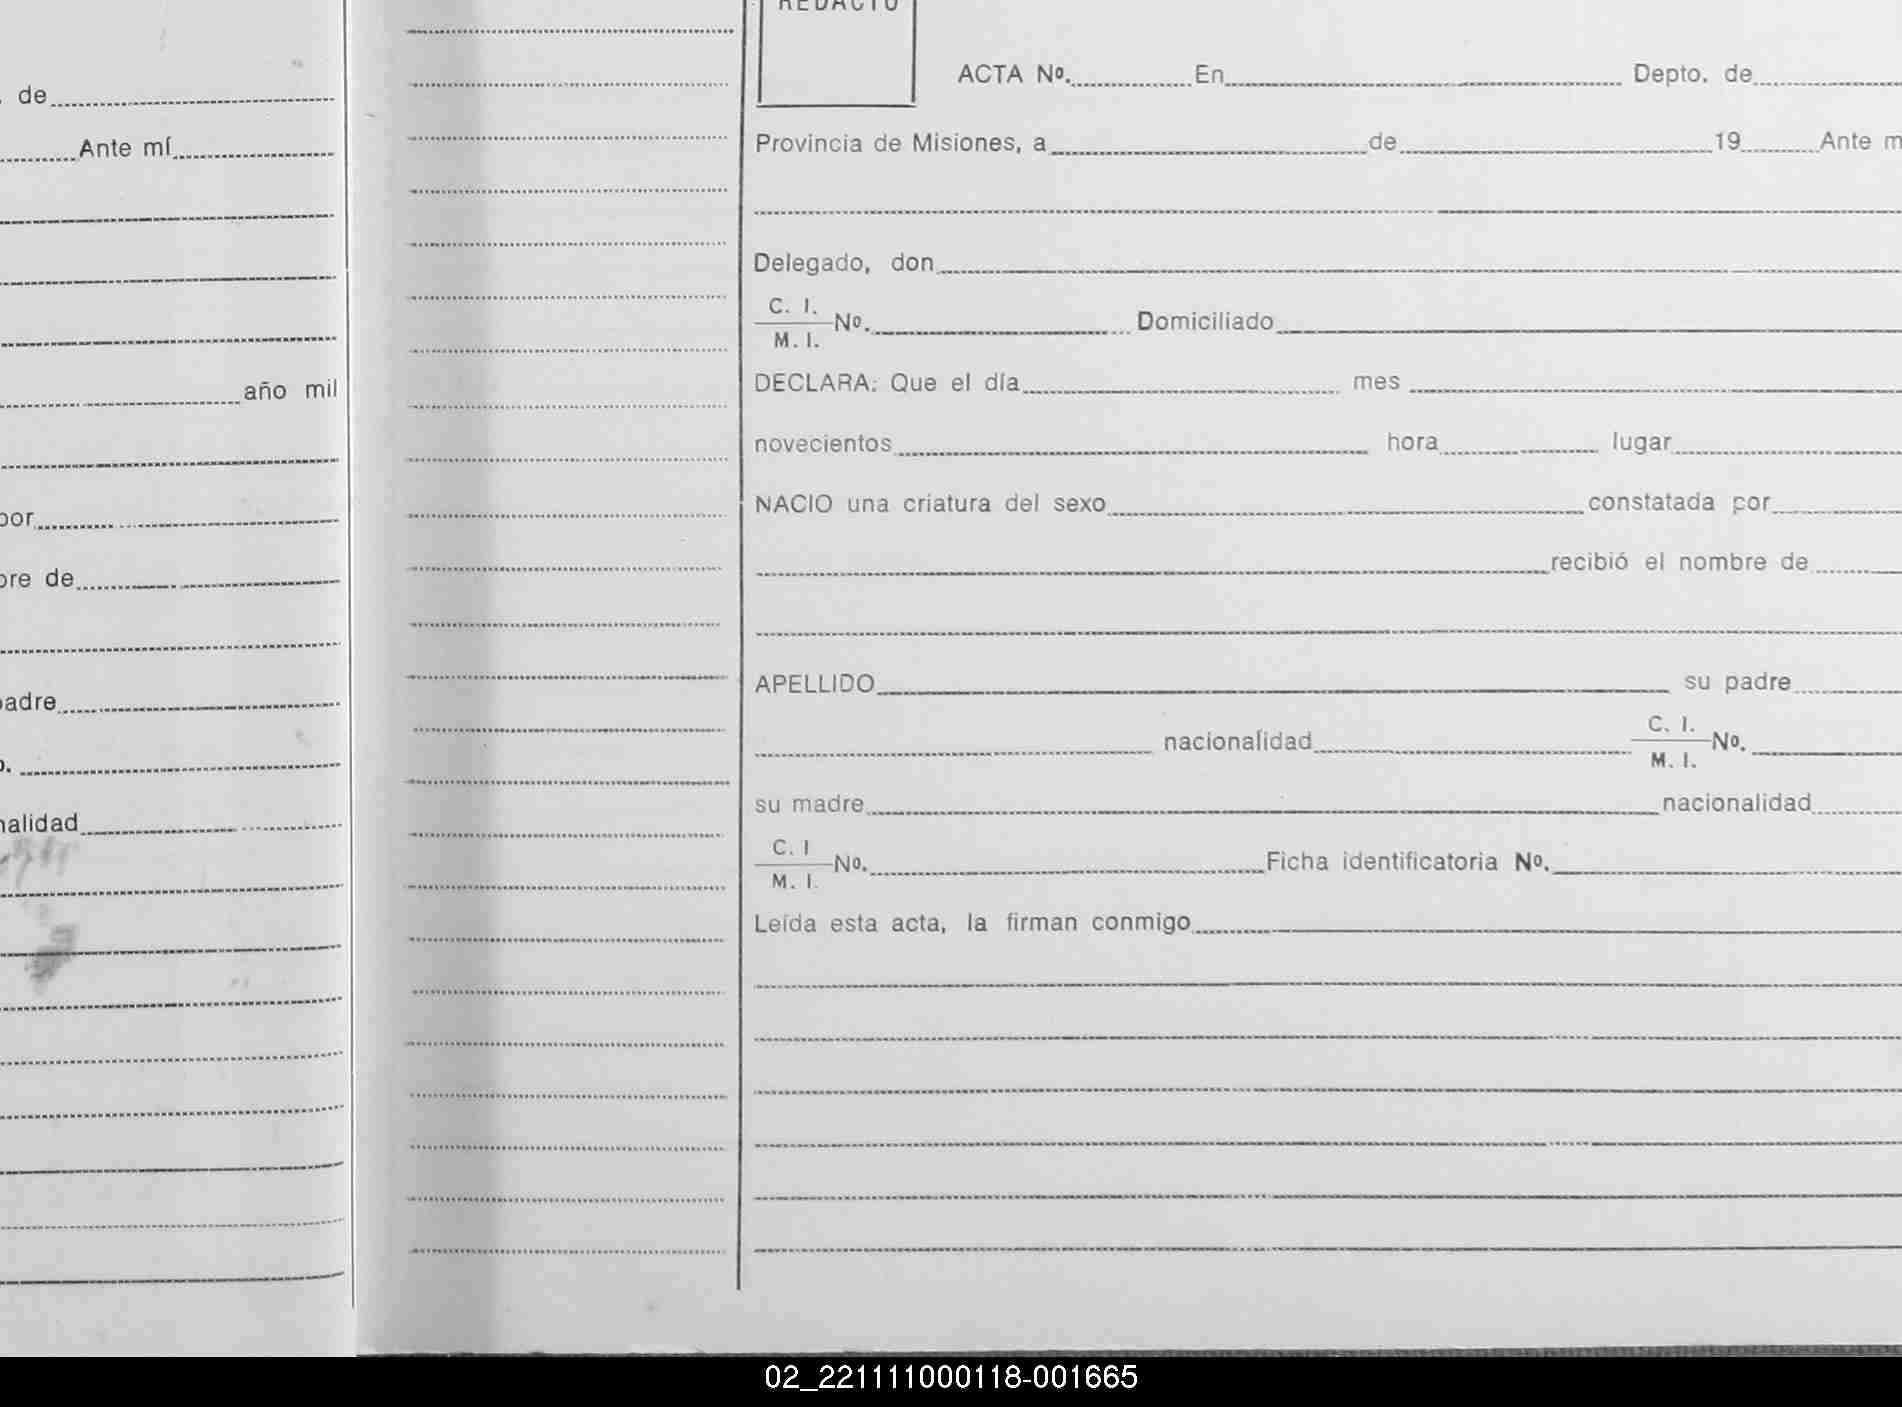 de
Ante mí
año mil
por
bre de
padre
nalidad
REDACTO
ACTA Nº. En Depto. de
Provincia de Misiones, a de 19 Ante m
Delegado, don
C. I.
M. I. Nº. Domiciliado
DECLARA: Que el día mes
novecientos hora lugar
NACIO una criatura del sexo constatada por
recibió el nombre de
APELLIDO su padre
nacionalidad C. I.
M. I. Nº.
su madre nacionalidad
C. I
M. I. Nº. Ficha identificatoria Nº.
Leída esta acta, la firman conmigo
02_221111000118-001665